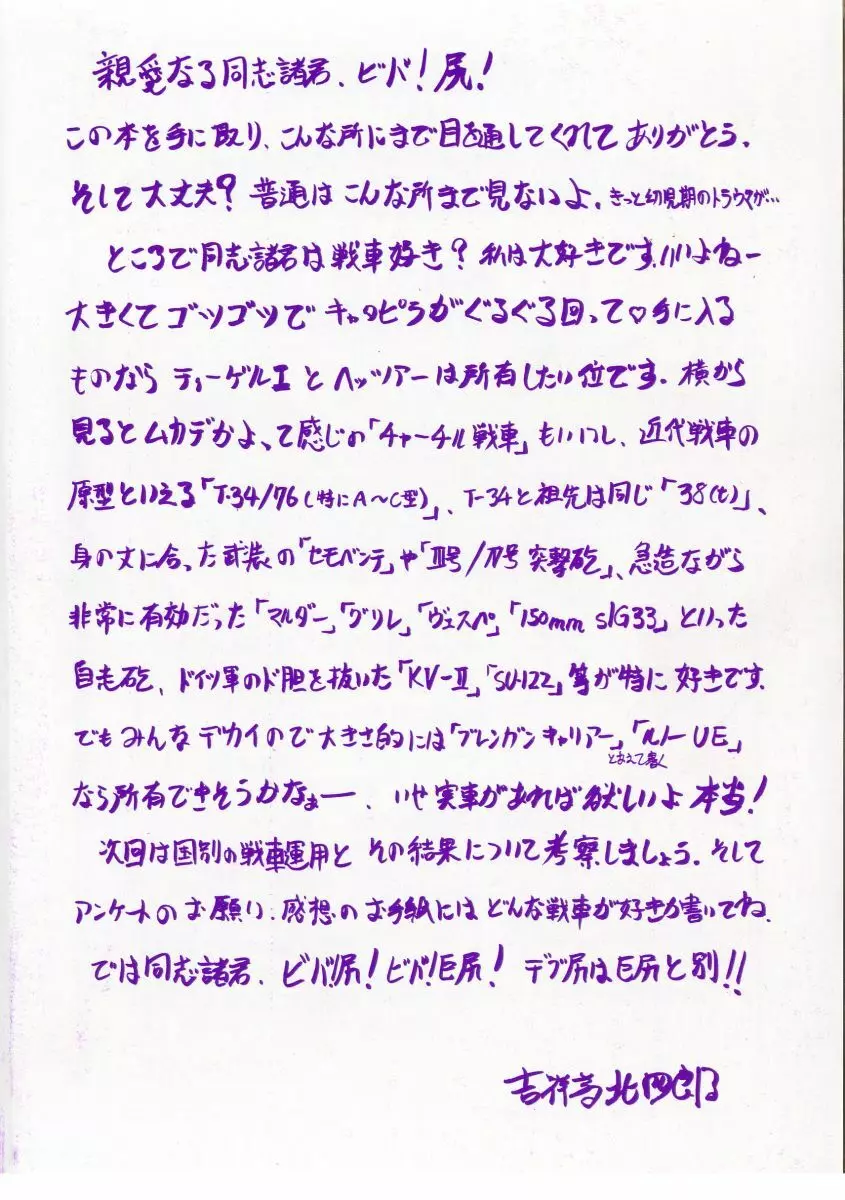 親愛なる同志諸君、ビバ!尻!
この本を手に取り、こんな所にまで目を通してくれてありがとう.
そして大丈夫?普通はこんな所まで見ないよ.きっと幼児期のトラウマが…
ところで同志諸君は戦車好き?私は大好きです.いいよねー
大きくてゴツゴツでキャタピラがぐるぐる回って♡手に入る
ものならティーゲルIとヘッツァーは所有したい位です.横から
見るとムカデかよ、って感じの「チャーチル戦車」もいいし、近代戦車の
原型といえる「T-34/76(特にA〜C型)」、T-34と祖先は同じ「38(t)」、
身の丈に合った武装の「セモベンテ」や「III号/IV号突撃砲」、急造ながら
非常に有効だった「マルダー」「グリレ」「ヴェスペ」「150mm sIG33」といった
自走砲、ドイツ軍のド胆を抜いた「KV-II」「SU-122」等が特に好きです.
でもみんなデカイので大きさ的には「ブレンガンキャリアー」「ルノーUE」
とあえて書く
なら所有できそうかなぁー、いせ実車があれば欲しいよ本当!
次回は国別の戦車運用とその結果について考察しましょう.そして
アンケートのお願い、感想のお手紙にはどんな戦車が好きか書いてね.
では同志諸君、ビバ!尻!ビバ!巨尻!デブ尻は巨尻と別!!
吉祥寺北四郎